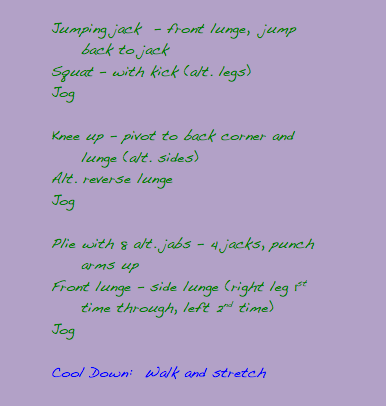 Jumping jack - front lunge, jump
back to jack
Squat - with kick (alt. legs)
Jog
Knee up - pivot to back corner and
lunge (alt. sides)
Alt. reverse lunge
Jog
Plie with 8 alt. jabs - 4 jacks, punch
arms up
Front lunge - side lunge (right leg 1st
time through, left 2nd time)
Jog
Cool Down: Walk and stretch